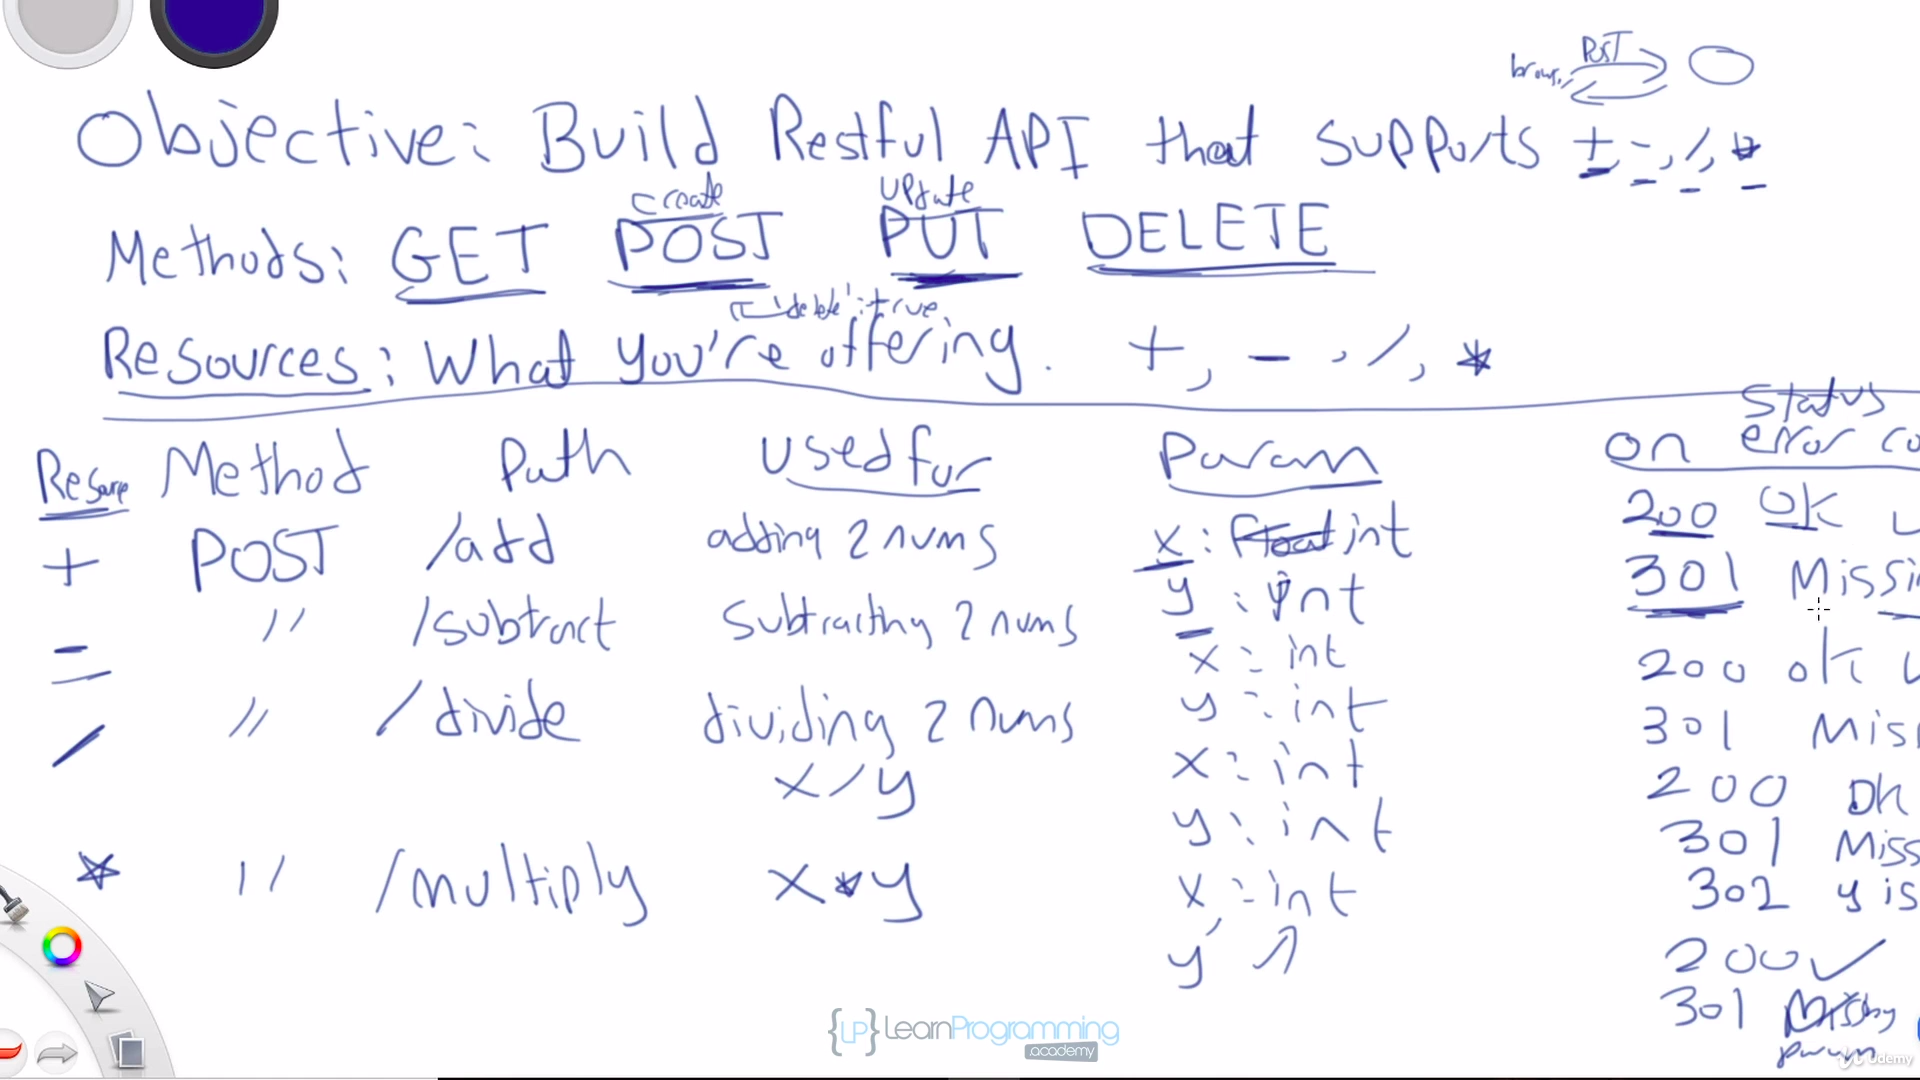 POST
Objective: Build Restful API that supports +, -, /, *
create update
Methods: GET POST PUT DELETE
'delete': true
Resources: What you're offering. +, -, /, *
Status
Method Path Used for Param on error co
+ POST /add adding 2 nums x: int 200 OK
y: int 301 Missi
- " /subtract subtracting 2 nums x: int 200 ok
y: int 301 Miss
/ " /divide dividing 2 nums x: int 200 OK
x/y y: int 301 Miss
* " /multiply x*y x: int 302 y is
y 200 ✓
301 Missing
param
{LP} LearnProgramming
.academy
Udemy